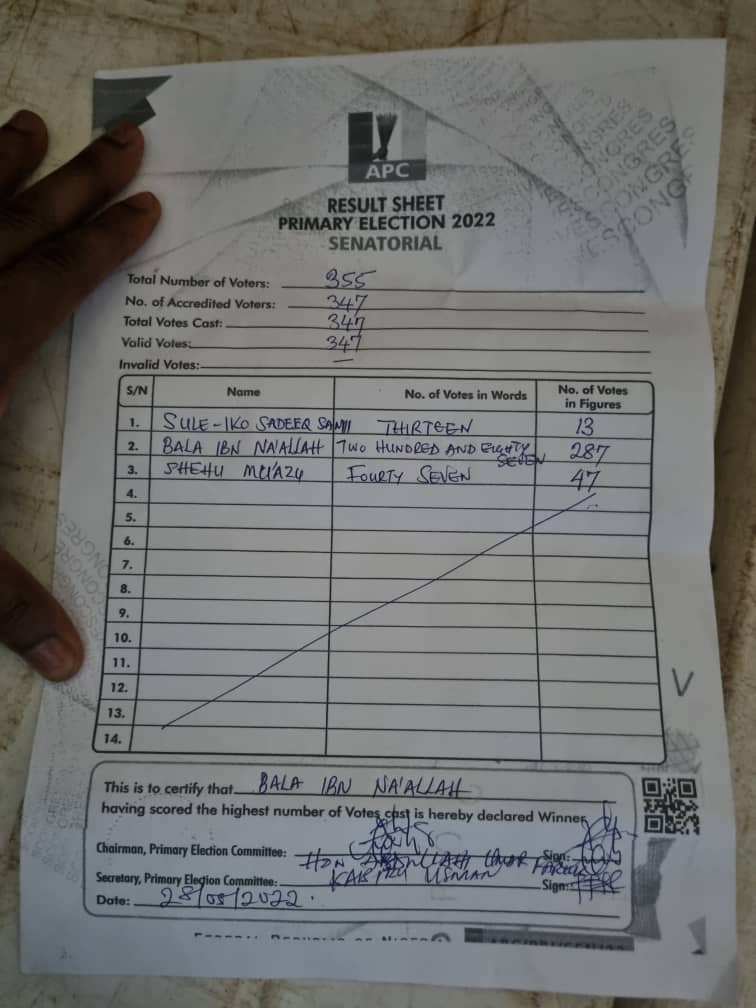 APC
RESULT SHEET
PRIMARY ELECTION 2022
SENATORIAL
Total Number of Voters: 355
No. of Accredited Voters: 347
Total Votes Cast: 347
Valid Votes: 347
Invalid Votes: —
S/N Name No. of Votes in Words No. of Votes in Figures
1. SULE-IKO SADEEQ SAMI THIRTEEN 13
2. BALA IBN NA'ALLAH TWO HUNDRED AND EIGHTY SEVEN 287
3. SHEHU MU'AZU FOURTY SEVEN 47
4.
5.
6.
7.
8.
9.
10.
11.
12.
13.
14.
This is to certify that BALA IBN NA'ALLAH
having scored the highest number of Votes cast is hereby declared Winner
Chairman, Primary Election Committee: HON ABDULLAHI UMAR FAROUK Sign:
Secretary, Primary Election Committee: KABIRU USMAN Sign:
Date: 28/05/2022.